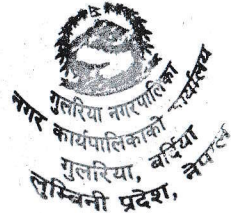 गुलरिया नगरपालिका
नगर कार्यपालिकाको कार्यालय
गुलरिया, बर्दिया
लुम्बिनी प्रदेश, नेपाल